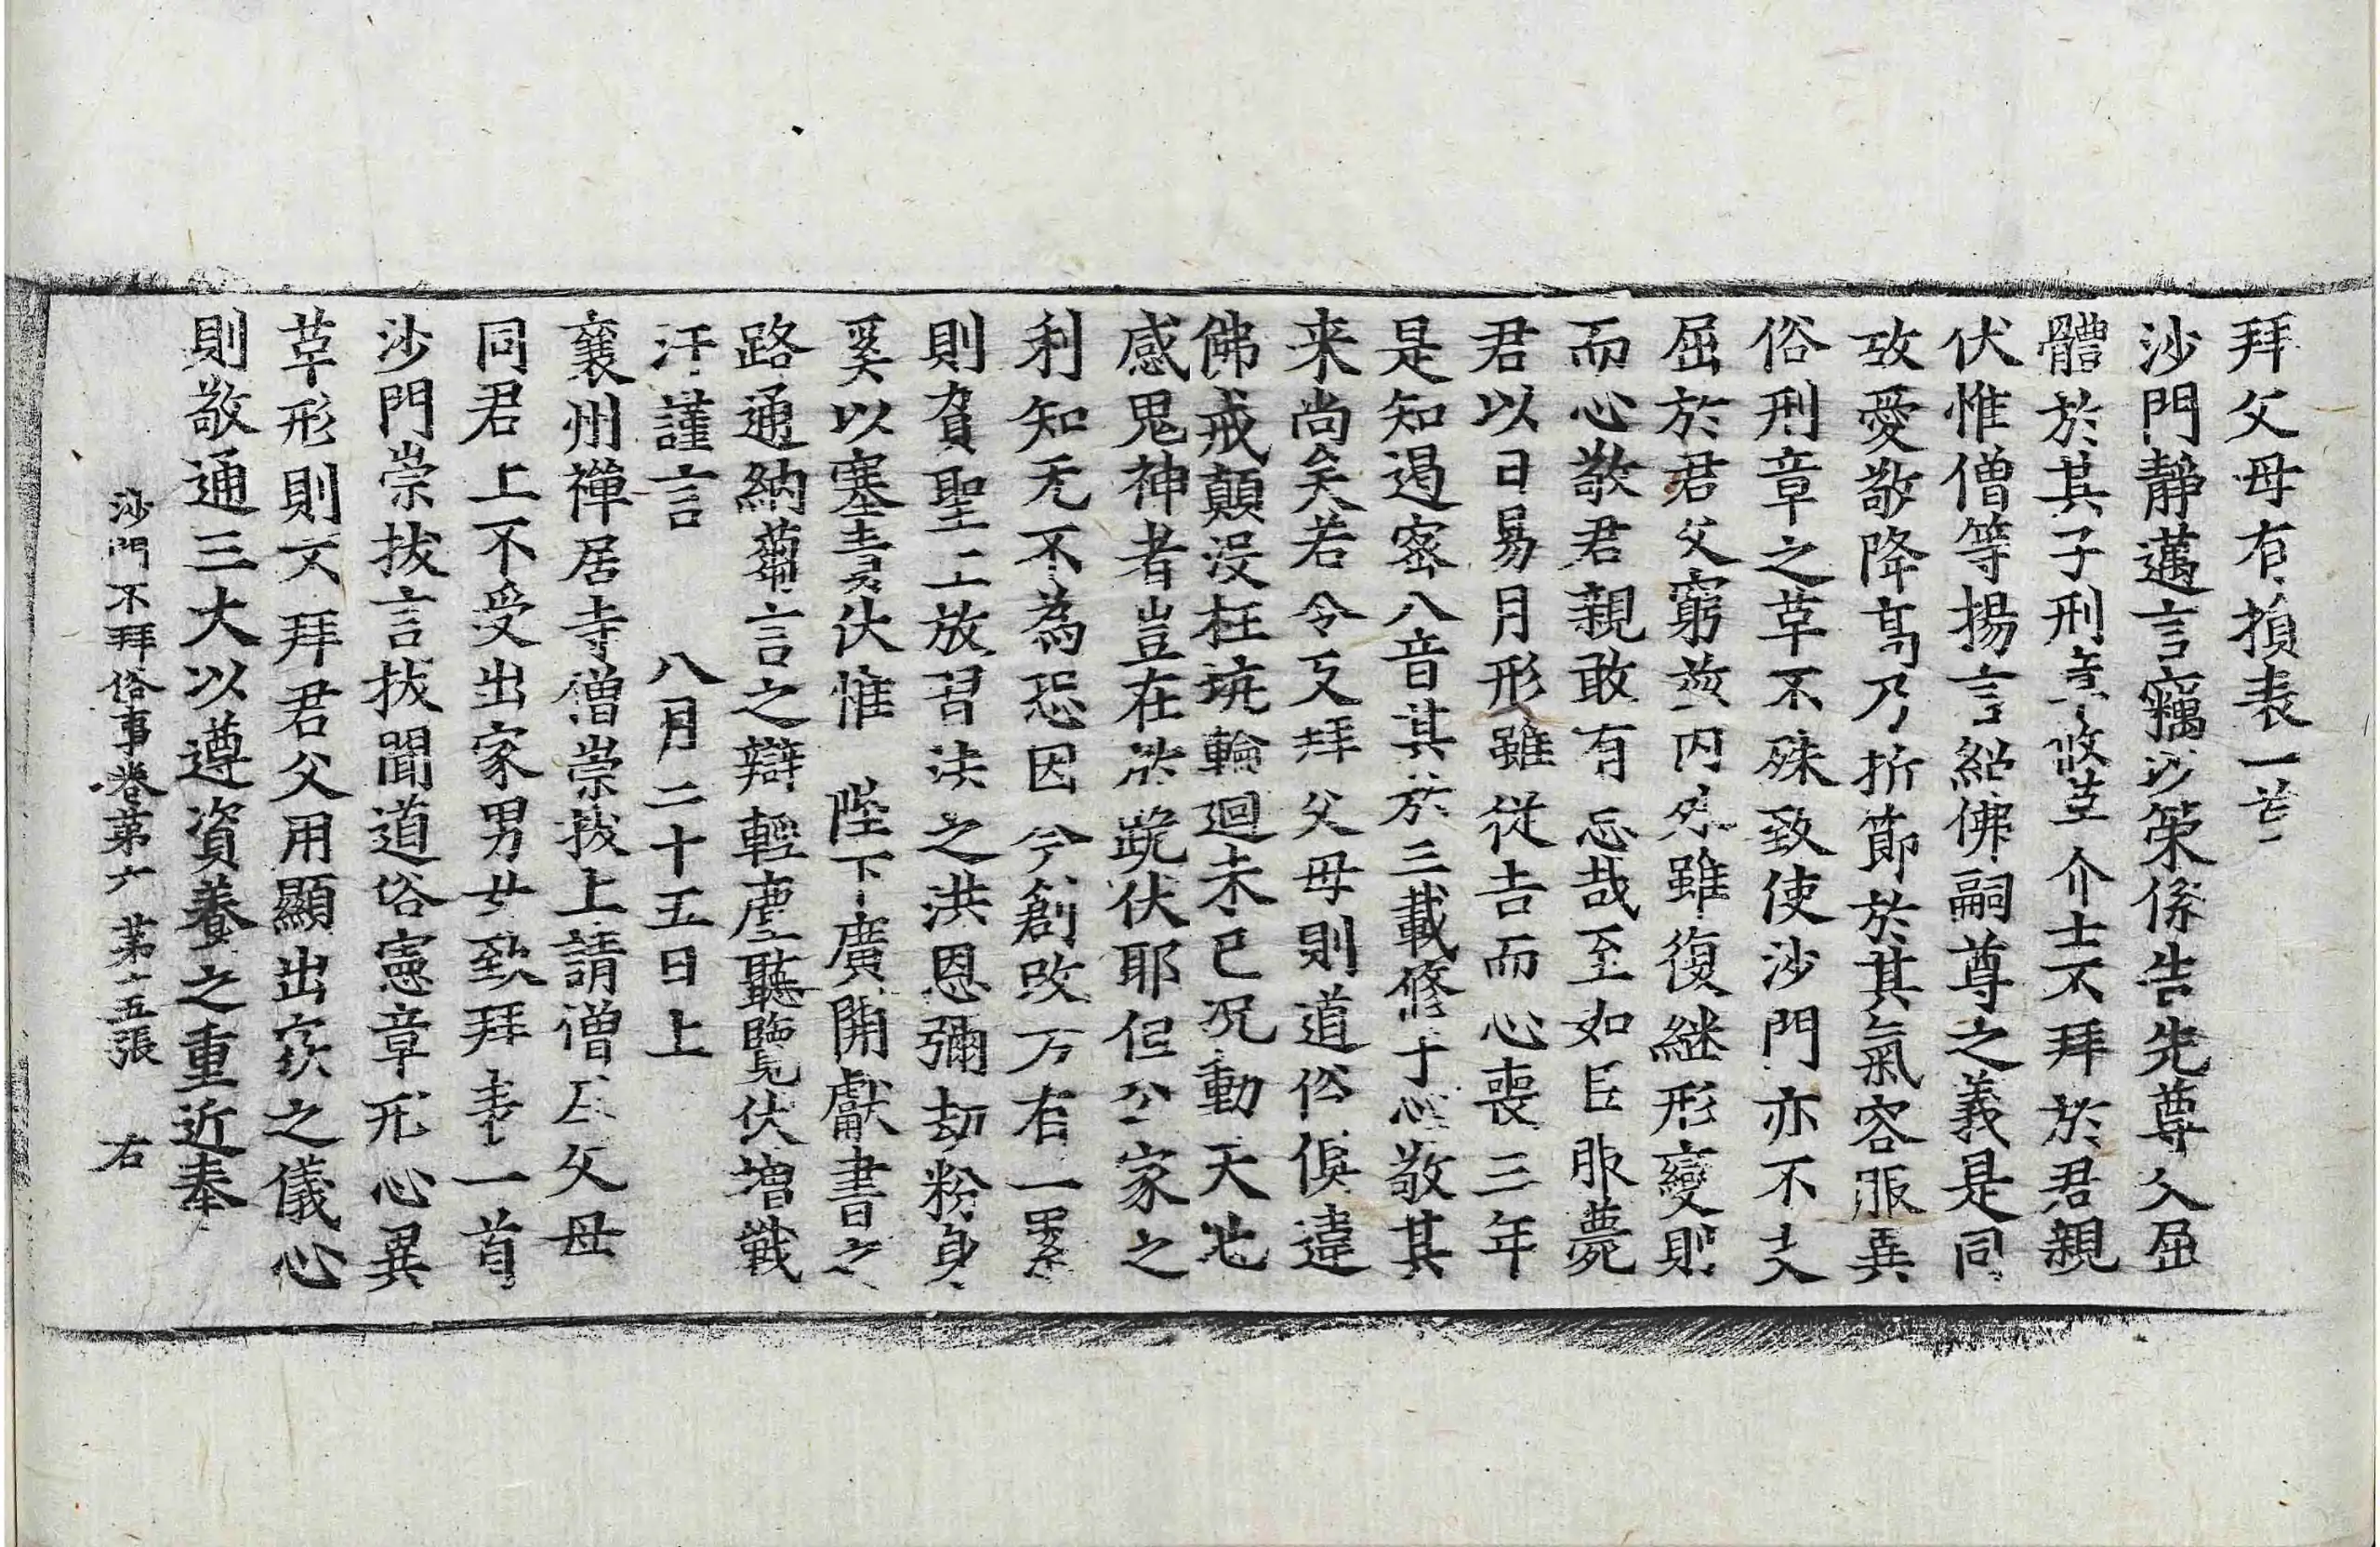 拜父母有損表一首
沙門靜邁言竊以策係告先尊父屈
體於其子刑章攸革介士不拜於君親
伏惟僧等揚言紹佛嗣尊之義是同
故愛敬降高乃折節於其氣容服異
俗刑章之革不殊致使沙門亦不夫
屈於君父窮茲內外雖復繼形變則
而心敬君親敢有忘哉至如臣服薨
君以日易月形雖從吉而心喪三年
是知遏密八音其於三載修于心敬其
来尚矣若令反拜父母則道俗俱違
佛戒顛沒枉坑輪迴未已況動天地
感鬼神者豈在於跪伏耶但公家之
利知无不為恐因今創改万有一累
則負聖上放習法之洪恩彌劫粉身
奚以塞責伏惟 陛下廣開獻書之
路通納蒭言之辯輕塵聽覽伏增戰
汗謹言 八月二十五日上
襄州禪居寺僧崇拔上請僧尼父母
同君上不受出家男女致拜表一首
沙門崇拔言拔聞道俗憲章形心異
革形則不拜君父用顯出家之儀心
則敬通三大以遵資養之重近奉
沙門不拜俗事卷第六 第十五張 右